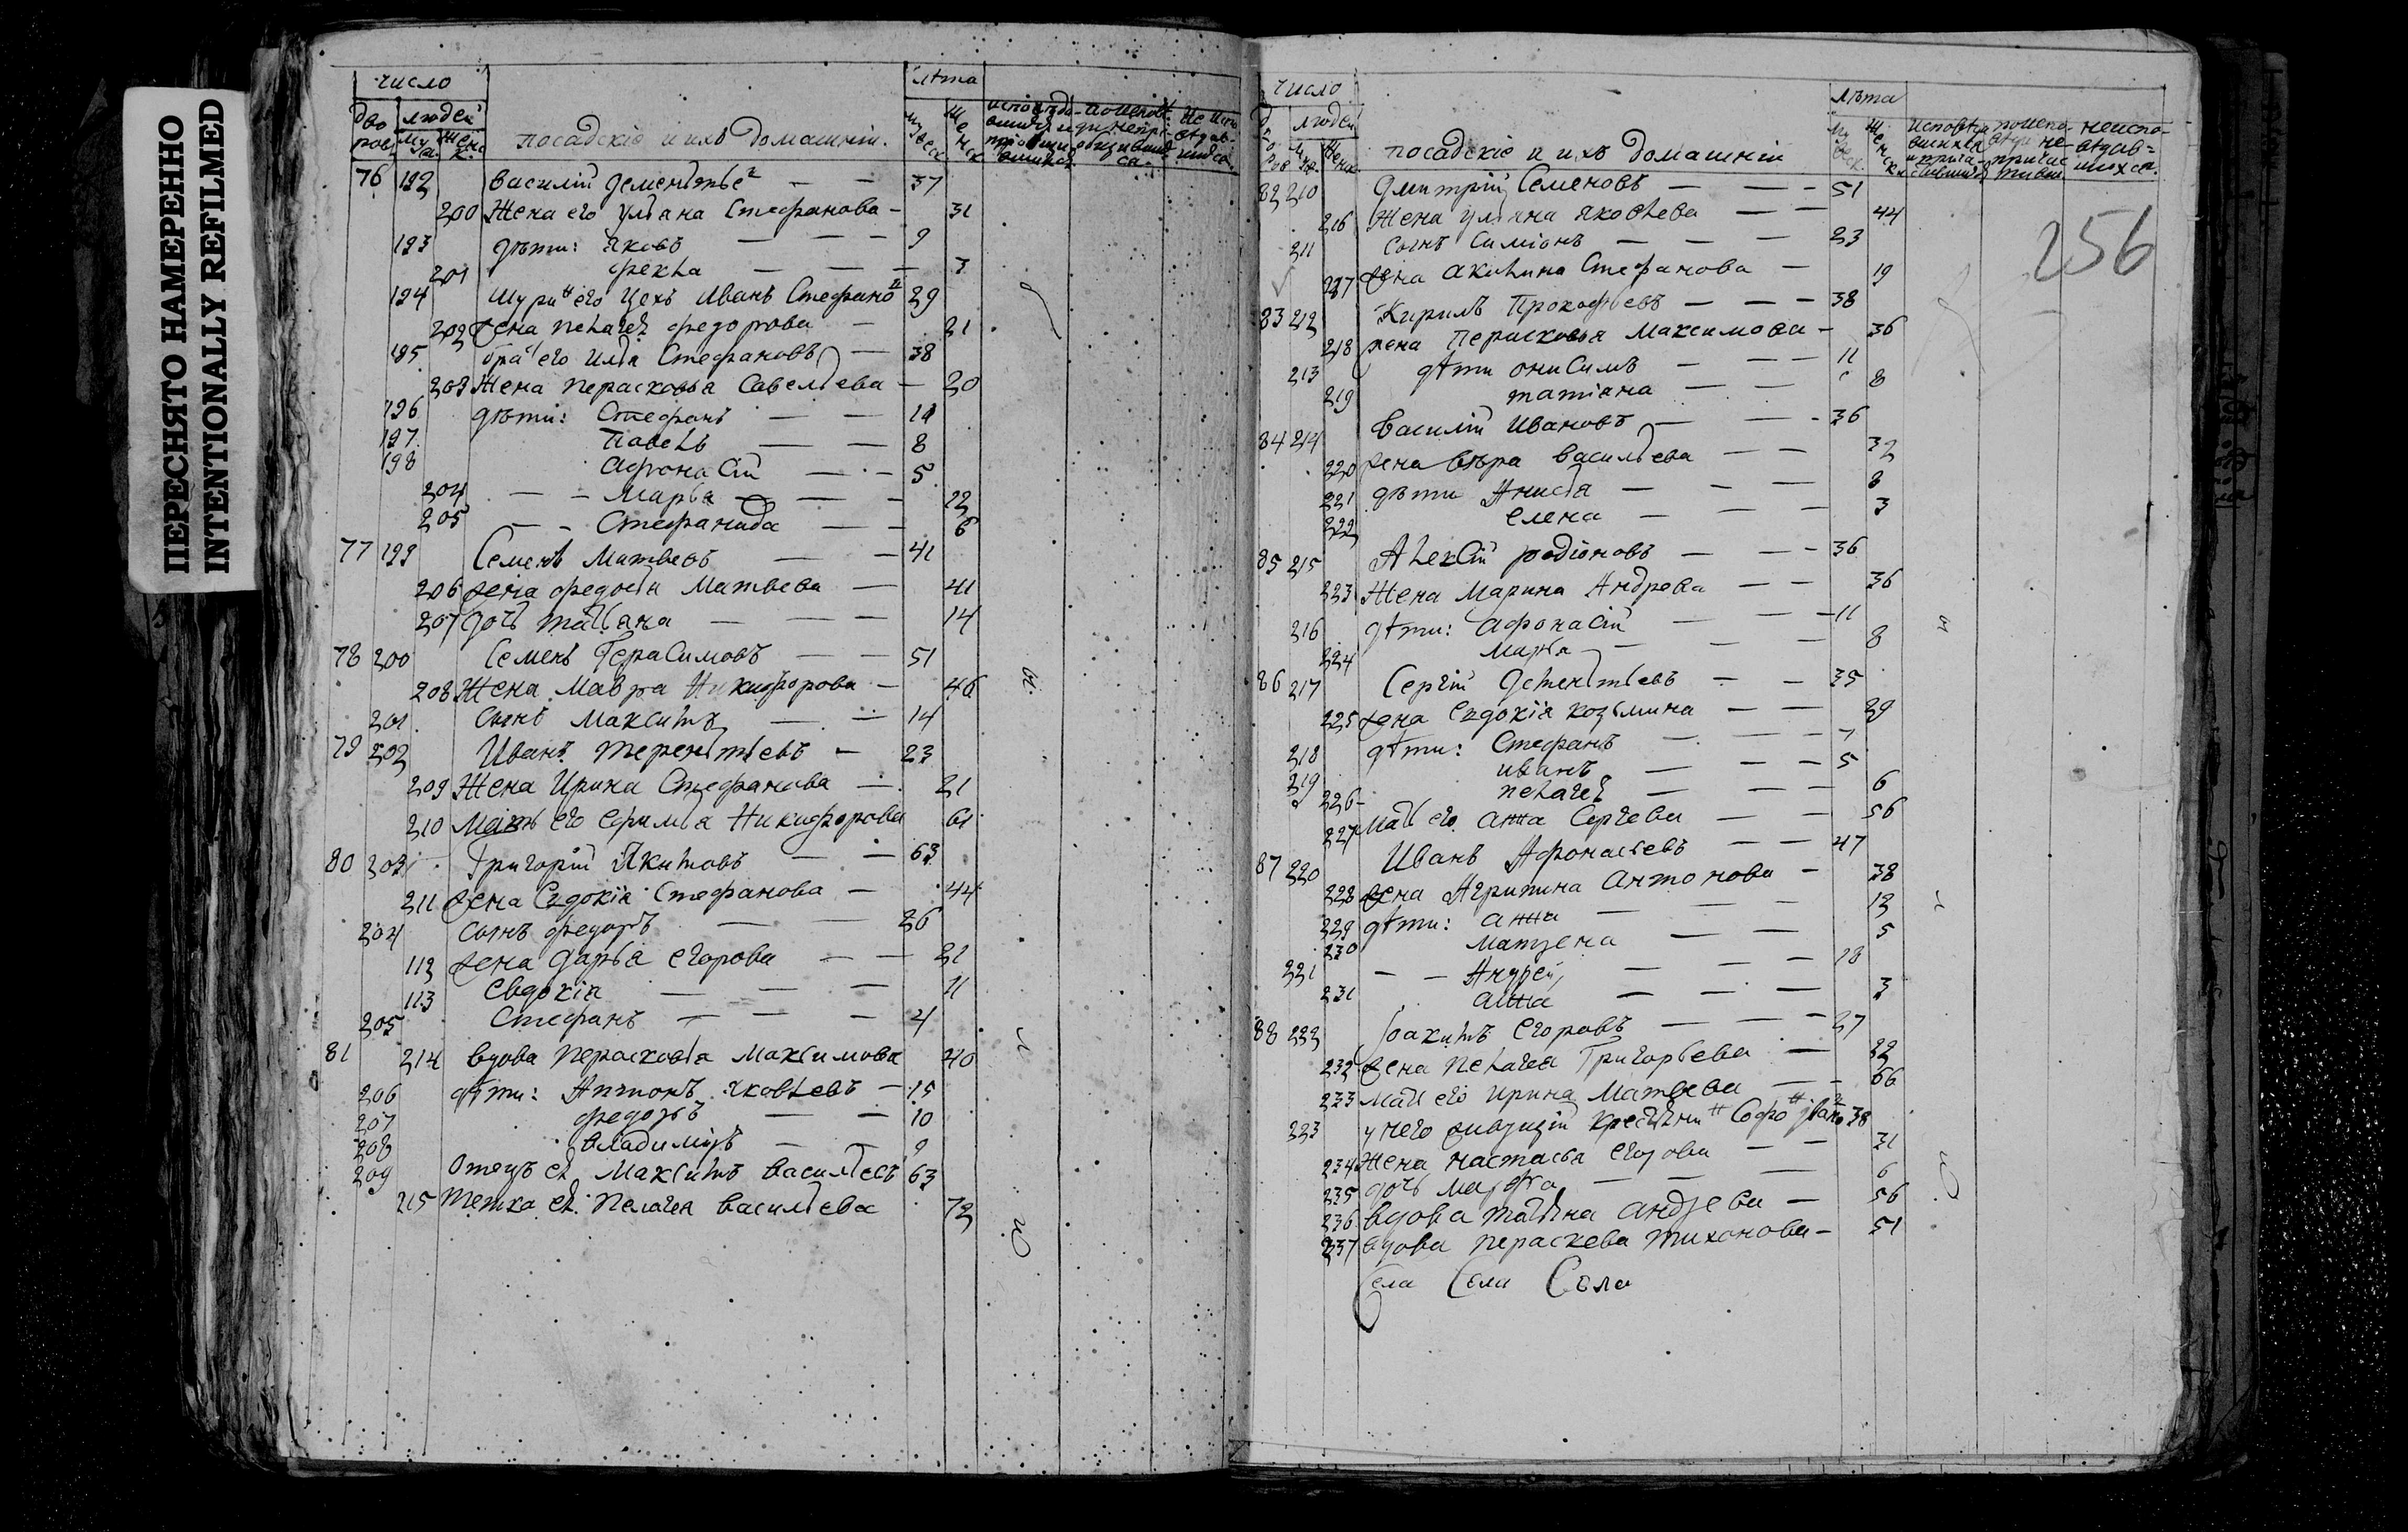 ПЕРЕСНЯТО НАМЕРЕННО
INTENTIONALLY REFILMED
число лѣта
дворов людей
муж. женск. посадскіе и ихъ домашніи. мужеск женск
76 192 Василій Дементьев 37
200 Жена его Ульяна Стефанова 31
193 Дѣти: Яковъ 9
201 Фекла 7
194 Шурин его Иванъ Стефанов 29
202 Жена Пелагея Федорова 21
195 брат его Илья Стефановъ 38
203 Жена Перасковья Савельева 20
196 Дѣти: Стефанъ
197 Павелъ 8
198 Афонасій 5
204 Марѳа 12
205 Стефанида 6
77 199 Семенъ Матвевъ 41
206 Жена Федосья Матвева 41
207 Дочь Татьяна 14
78 200 Семенъ Герасимовъ 51
208 Жена Мавра Никифорова 46
201 Сынъ Максимъ 14
79 202 Иванъ Терентьевъ 23
209 Жена Ирина Стефанова 21
210 Мать его Ефимья Никифорова 61
80 203 Григорій Якимовъ 63
211 Жена Евдокія Стефанова 44
204 Сынъ Федоръ 26
112 Жена Дарья Егорова 21
113 Евдокія 11
205 Стефанъ 4
81 214 Вдова Перасковья Максимова 40
206 Дѣти: Антонъ Яковлевъ 15
207 Федоръ 10
208 Владимиръ 9
209 Отецъ ея Максимъ Васильевъ 63
215 Тетка ея Пелагея Васильева 72
число лѣта
людей
посадскіе и ихъ домашніи
исповѣдавшихся неисповѣдавшихся
256
82 210 Дмитрій Семеновъ 51
216 Жена Ульяна Яковлева 44
211 Сынъ Симіонъ 23
217 Жена Акилина Стефанова 19
83 212 Кирилъ Прокофьевъ 38
218 Жена Перасковья Максимова 36
213 Дѣти Онисимъ 11
219 Татіана 8
84 214 Василій Ивановъ 36
220 Жена Вѣра Васильева 32
221 Дѣти Анисья 8
222 Елена 3
85 215 Алексій Родіоновъ 36
223 Жена Марина Андрева 36
216 Дѣти: Афонасій 11
224 Марѳа 8
86 217 Сергій Дементьевъ 35
225 Жена Евдокія Козьмина 29
218 Дѣти: Стефанъ 7
219 Иванъ 5
226 Пелагея 6
227 Мать его Анна Сергева 56
87 220 Иванъ Афонасьевъ 47
228 Жена Агрипина Антонова 38
229 Дѣти: Анна 12
230 Матрена 5
221 Андрей 18
231 Анна 3
88 222 Іоакимъ Егоровъ 27
232 Жена Пелагея Григорьева 22
233 Мать его Ирина Матвева 66
223 у него живущій крестьянин Софон Иванов 38
234 Жена Настасья Егорова 31
235 Дочь Марѳа 6
236 Вдова Татьяна Андрева 56
237 Вдова Перасковья Тихонова 51
Села Села Села